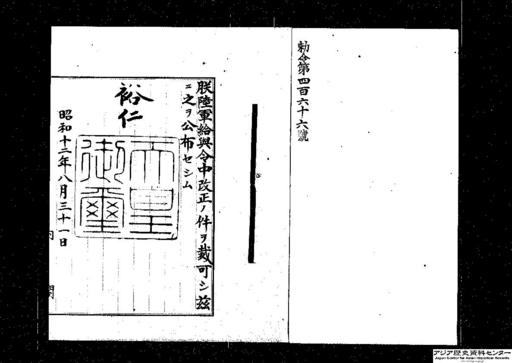 勅令第四百六十六號
朕陸軍給與令中改正ノ件ヲ裁可シ茲
ニ之ヲ公布セシム
裕仁
天皇御璽
昭和十二年八月三十一日
内閣
アジア歴史資料センター
Japan Center for Asian Historical Records